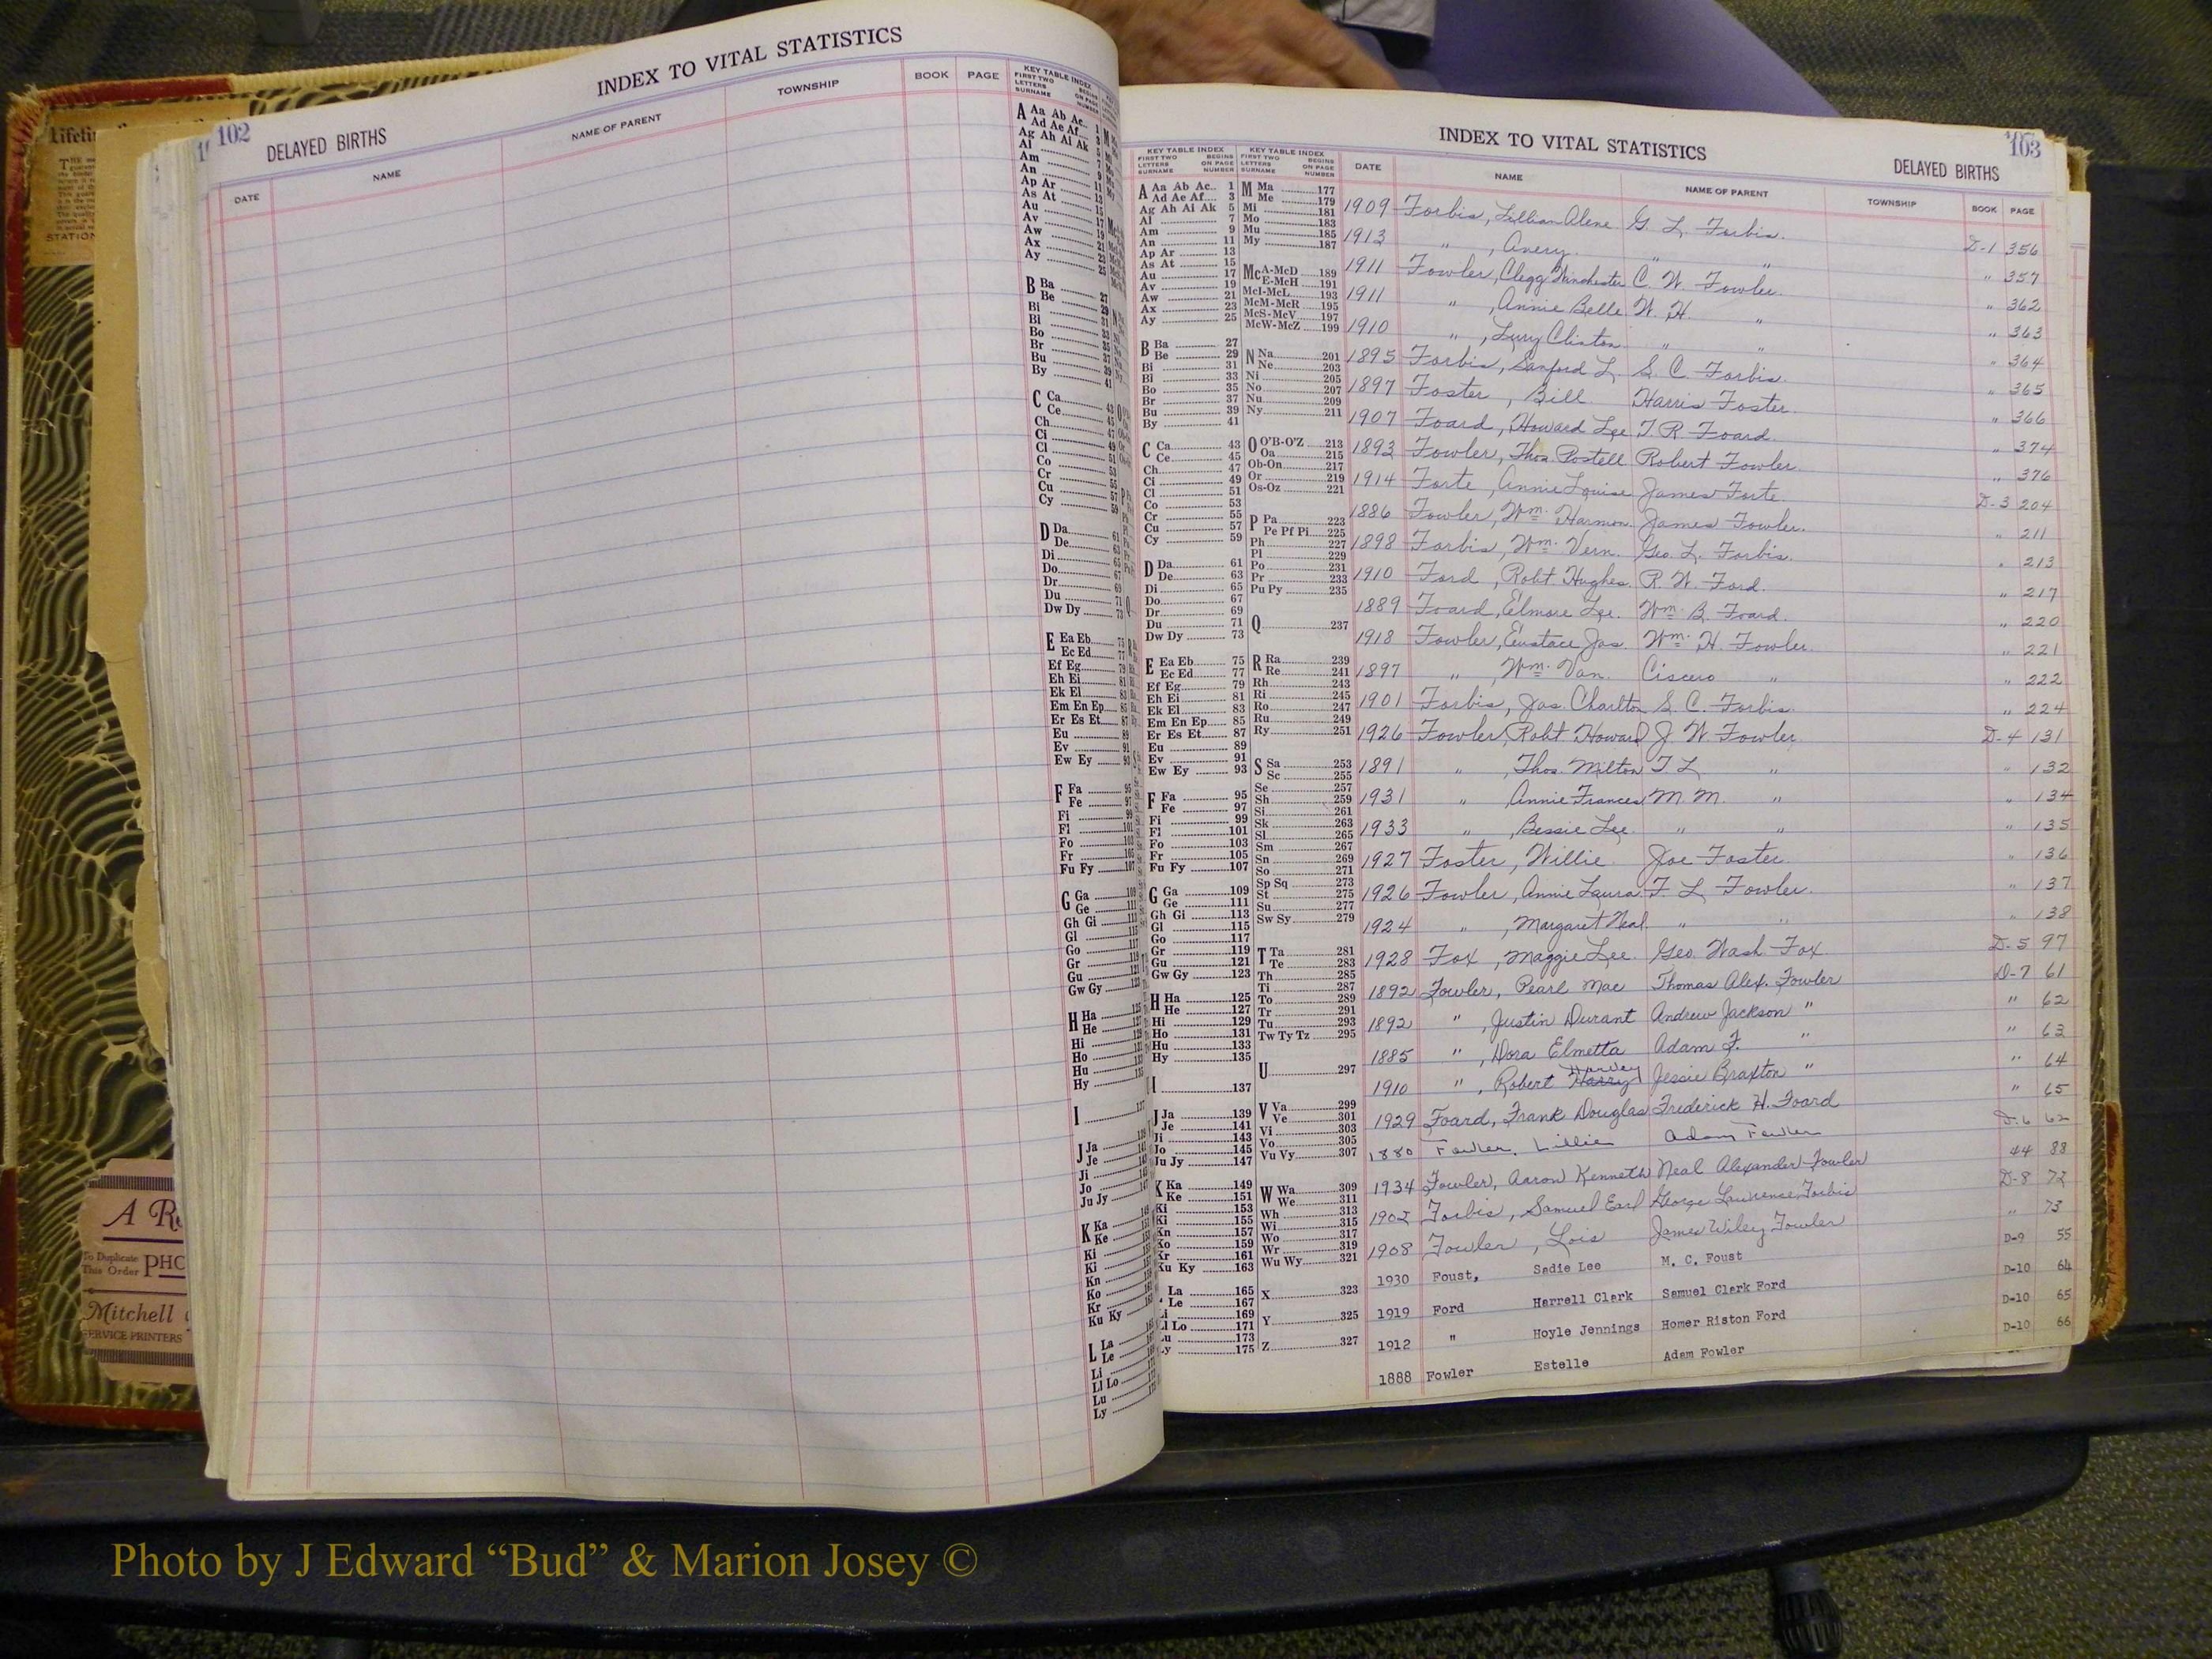 INDEX TO VITAL STATISTICS
102
DELAYED BIRTHS
DATE
NAME
NAME OF PARENT
TOWNSHIP
BOOK
PAGE
KEY TABLE INDEX
FIRST TWO LETTERS SURNAME
BEGINS ON PAGE NUMBER
INDEX TO VITAL STATISTICS
103
DELAYED BIRTHS
KEY TABLE INDEX KEY TABLE INDEX
FIRST TWO LETTERS SURNAME BEGINS ON PAGE NUMBER
DATE NAME NAME OF PARENT TOWNSHIP BOOK PAGE
A Aa Ab Ac.. 1
Ad Ae Af.... 3
Ag Ah Ai Ak 5
Al 7
Am 9
An 11
Ap Ar 13
As At 15
Au 17
Av 19
Aw 21
Ax 23
Ay 25
B Ba 27
Be 29
Bi 31
Bl 33
Bo 35
Br 37
Bu 39
By 41
C Ca 43
Ce 45
Ch 47
Ci 49
Cl 51
Co 53
Cr 55
Cu 57
Cy 59
D Da 61
De 63
Di 65
Do 67
Dr 69
Du 71
Dw Dy 73
E Ea Eb 75
Ec Ed 77
Ef Eg 79
Eh Ei 81
Ek El 83
Em En Ep 85
Er Es Et 87
Eu 89
Ev 91
Ew Ey 93
F Fa 95
Fe 97
Fi 99
Fl 101
Fo 103
Fr 105
Fu Fy 107
G Ga 109
Ge 111
Gh Gi 113
Gl 115
Go 117
Gr 119
Gu 121
Gw Gy 123
H Ha 125
He 127
Hi 129
Ho 131
Hu 133
Hy 135
I 137
J Ja 139
Je 141
Ji 143
Jo 145
Ju Jy 147
K Ka 149
Ke 151
Ki 153
Kl 155
Kn 157
Ko 159
Kr 161
Ku Ky 163
La 165
Le 167
Li 169
Ll Lo 171
Lu 173
Ly 175
M Ma 177
Me 179
Mi 181
Mo 183
Mu 185
My 187
McA-McD 189
E-McH 191
McI-McL 193
McM-McR 195
McS-McV 197
McW-McZ 199
N Na 201
Ne 203
Ni 205
No 207
Nu 209
Ny 211
O O'B-O'Z 213
Oa 215
Ob-On 217
Or 219
Os-Oz 221
P Pa 223
Pe Pf Pi 225
Ph 227
Pl 229
Po 231
Pr 233
Pu Py 235
Q 237
R Ra 239
Re 241
Rh 243
Ri 245
Ro 247
Ru 249
Ry 251
S Sa 253
Sc 255
Se 257
Sh 259
Si 261
Sk 263
Sl 265
Sm 267
Sn 269
So 271
Sp Sq 273
St 275
Su 277
Sw Sy 279
T Ta 281
Te 283
Th 285
Ti 287
To 289
Tr 291
Tu 293
Tw Ty Tz 295
U 297
V Va 299
Ve 301
Vi 303
Vo 305
Vu Vy 307
W Wa 309
We 311
Wh 313
Wi 315
Wo 317
Wr 319
Wu Wy 321
X 323
Y 325
Z 327
1909 Forbis, Lillian Alene G. L. Forbis. D-1 356
1913 " , Avery " " " 357
1911 Fowler, Clegg Winchester C. W. Fowler. " 362
1911 " , Annie Belle W. H. " " 363
1910 " , Lury Clinton " " " 364
1895 Forbis, Sanford L. S. C. Forbis. " 365
1897 Foster, Bill Harris Foster. " 366
1907 Foard, Howard Lee T. R. Foard. " 374
1893 Fowler, Thos. Postell Robert Fowler. " 376
1914 Forte, Annie Louise James Forte. D-3 204
1886 Fowler, Wm. Harmon. James Fowler. " 211
1898 Forbis, Wm. Vern. Geo. L. Forbis. " 213
1910 Ford, Robt Hughes. R. W. Ford. " 217
1889 Foard, Elmore Lee. Wm. B. Foard. " 220
1918 Fowler, Eustace Jas. Wm. H. Fowler. " 221
1897 " , Wm. Van. Cicero " " 222
1901 Forbis, Jas. Charlton S. C. Forbis. " 224
1926 Fowler, Robt Howard J. W. Fowler D-4 131
1891 " , Thos. Milton T. L. " " 132
1931 " Annie Frances M. M. " " 134
1933 " , Bessie Lee. " " " 135
1927 Foster, Willie. Joe Foster. " 136
1926 Fowler, Annie Laura. T. L. Fowler. " 137
1924 " , Margaret Neal. " " " 138
1928 Fox, Maggie Lee. Geo. Wash. Fox D-5 97
1892 Fowler, Pearl Mae Thomas Alex. Fowler D-7 61
1892 " , Justin Durant Andrew Jackson " " 62
1885 " , Dora Elmetta Adam F. " " 63
1910 " , Robert Harry Harvey Jessie Braxton " " 64
1929 Foard, Frank Douglas Frederick H. Foard " 65
1880 Fowler, Lillie Adam Fowler D-6 62
1934 Fowler, Aaron Kenneth Neal Alexander Fowler 44 88
1902 Forbis, Samuel Earl George Lawrence Forbis D-8 72
1908 Fowler, Lois James Wiley Fowler " 73
1930 Foust, Sadie Lee M. C. Foust D-9 55
1919 Ford Harrell Clark Samuel Clark Ford D-10 64
1912 " Hoyle Jennings Homer Riston Ford D-10 65
1888 Fowler Estelle Adam Fowler D-10 66
STATION
To Duplicate
This Order
Mitchell
SERVICE PRINTERS
Photo by J Edward “Bud” & Marion Josey ©